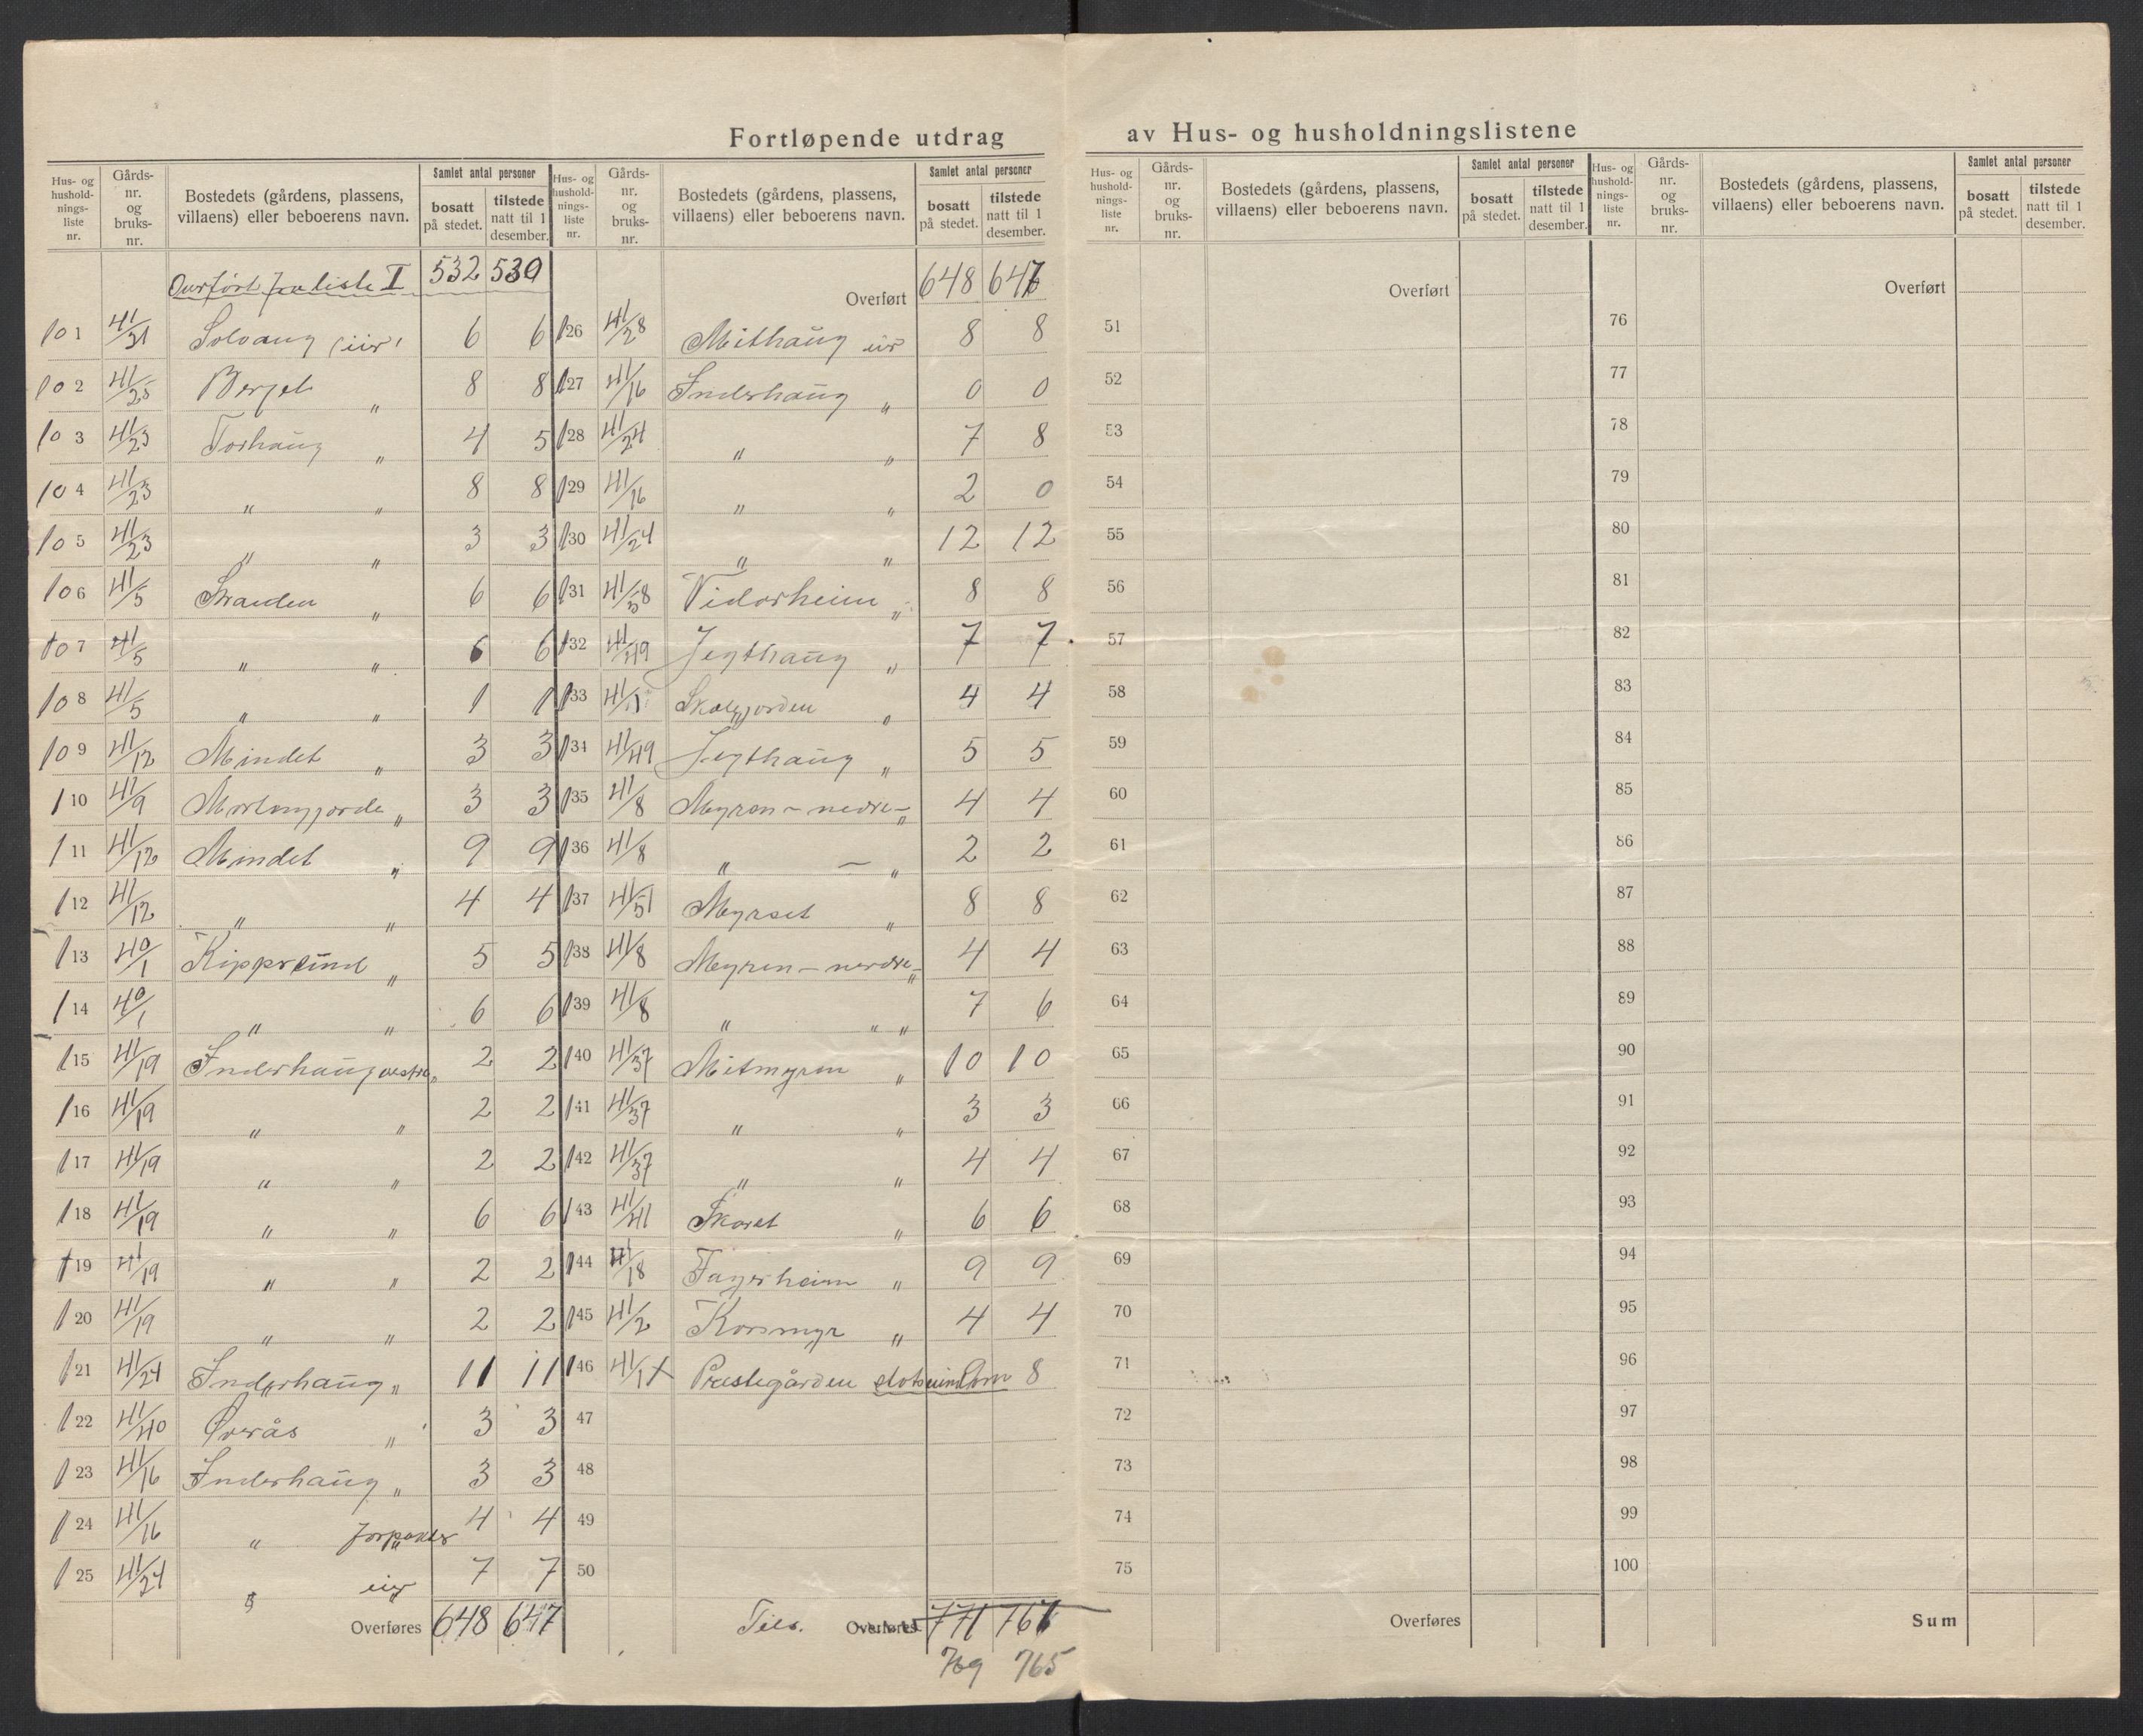 Fortløpende utdrag av Hus- og husholdningslistene
Hus- og hushold-nings-liste nr. | Gårds-nr. og bruks-nr. | Bostedets (gårdens, plassens, villaens) eller beboerens navn. | Samlet antal personer | bosatt på stedet. | tilstede natt til 1 desember.
Overført fra liste I 532 530
101 41/31 Solvang (eier) 6 6
102 41/25 Berget " 8 8
103 41/23 Torhaug " 4 5
104 41/23 " " 8 8
105 41/23 " " 3 3
106 41/5 Stranden " 6 6
107 41/5 " " 6 6
108 41/5 " " 1 1
109 41/12 Mindet " 3 3
110 41/9 " 3 3
111 41/12 Mindet " 9 9
112 41/12 " " 4 4
113 40/1 " 5 5
114 40/1 " " 6 6
115 41/19 Inderhaug vestre " 2 2
116 41/19 " " 2 2
117 41/19 " " 2 2
118 41/19 " " 6 6
119 41/19 " " 2 2
120 41/19 " " 2 2
121 41/24 Inderhaug " 11 11
122 41/40 Øverås " 3 3
123 41/16 Inderhaug " 3 3
124 41/16 " forpakter 4 4
125 41/24 " eier 7 7
Overføres 648 647
Hus- og hushold-nings-liste nr. | Gårds-nr. og bruks-nr. | Bostedets (gårdens, plassens, villaens) eller beboerens navn. | Samlet antal personer | bosatt på stedet. | tilstede natt til 1 desember.
Overført 648
126 41/28 Mithaug eier 8 8
127 41/16 Inderhaug " 0 0
128 41/24 " " 7 8
129 41/16 " " 2 0
130 41/24 " " 12 12
131 Vidarheim " 8 8
132 41/49 Jegthaug " 7 7
133 " 4 4
134 41/49 Jegthaug " 5 5
135 41/8 Myren - nedre - " 4 4
136 41/8 " - " 2 2
137 41/51 Myrset " 8 8
138 41/8 Myren - nedre - " 4 4
139 41/8 " " " 7 6
140 41/37 Mitmyren " 10 10
141 41/37 " " 3 3
142 41/37 " " 4 4
143 41/41 Skaret " 6 6
144 41/18 Fagerheim " 9 9
145 41/2 Korsmyr " 4 4
146 41/1 Prestegården 8
47
48
49
50
Tils. Overføres 771
769 765
Hus- og hushold-nings-liste nr. | Gårds-nr. og bruks-nr. | Bostedets (gårdens, plassens, villaens) eller beboerens navn. | Samlet antal personer | bosatt på stedet. | tilstede natt til 1 desember.
Overført
51
52
53
54
55
56
57
58
59
60
61
62
63
64
65
66
67
68
69
70
71
72
73
74
75
Overføres
Hus- og hushold-nings-liste nr. | Gårds-nr. og bruks-nr. | Bostedets (gårdens, plassens, villaens) eller beboerens navn. | Samlet antal personer | bosatt på stedet. | tilstede natt til 1 desember.
Overført
76
77
78
79
80
81
82
83
84
85
86
87
88
89
90
91
92
93
94
95
96
97
98
99
100
Sum